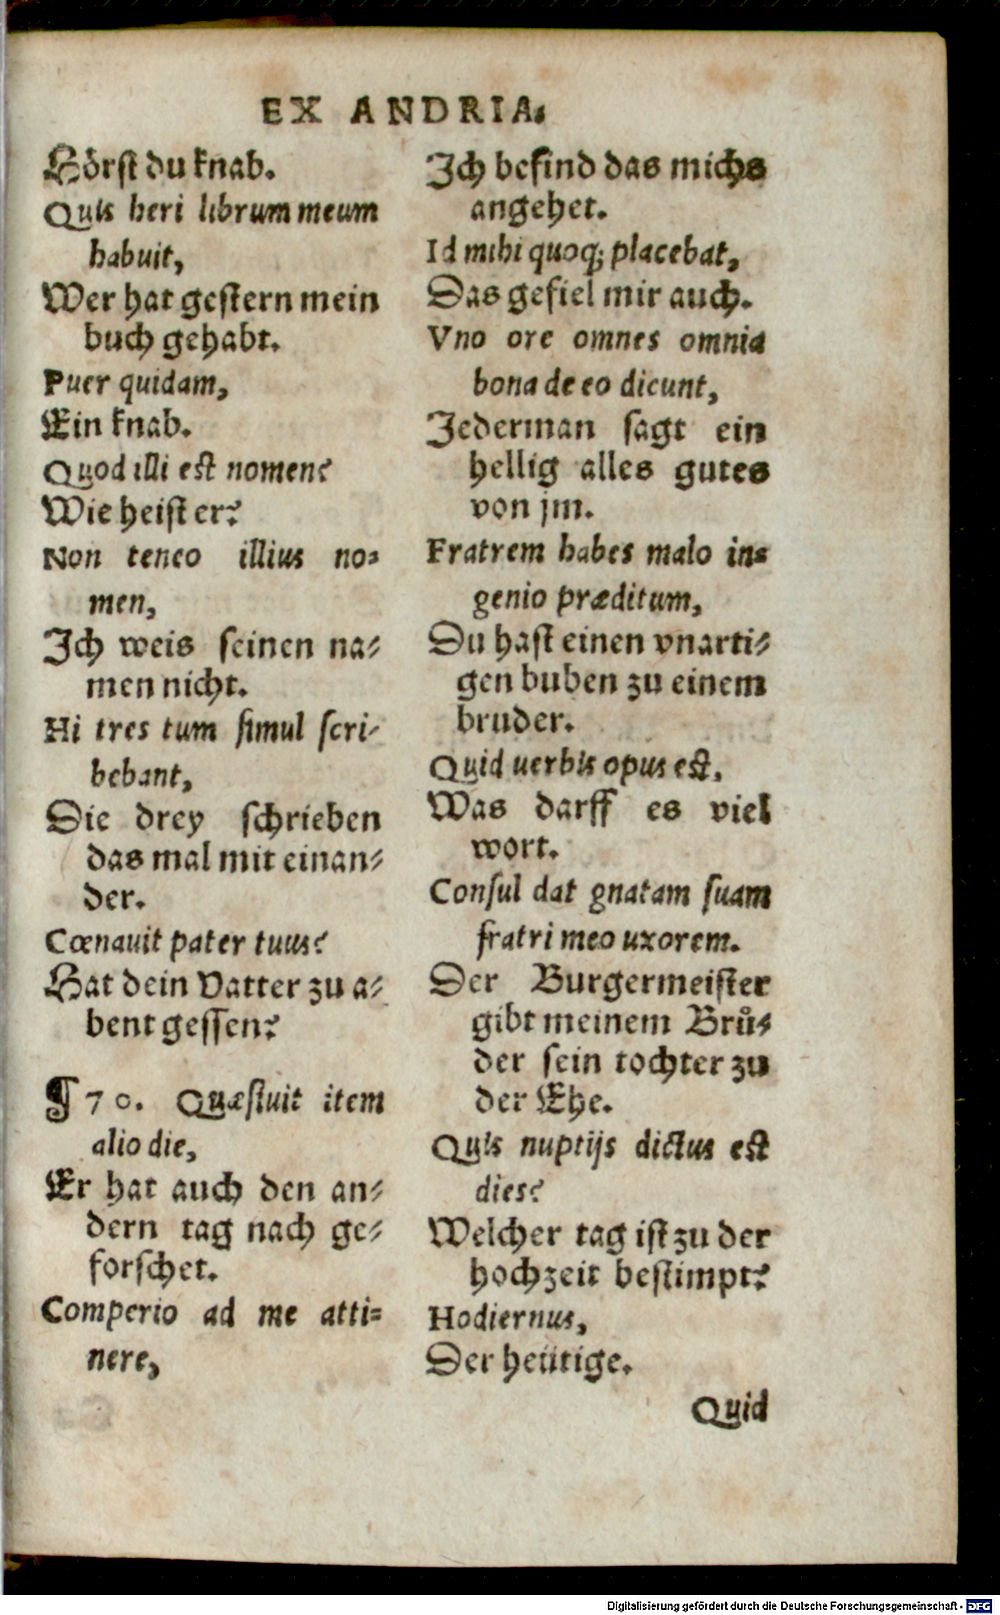 EX ANDRIA.
Hörst du knab.
Quis heri librum meum
habuit,
Wer hat gestern mein
buch gehabt.
Puer quidam,
Ein knab.
Quod illi est nomen?
Wie heist er?
Non teneo illius no-
men,
Ich weis seinen na-
men nicht.
Hi tres tum simul scri-
bebant,
Die drey schrieben
das mal mit einan-
der.
Cœnauit pater tuus?
Hat dein Vatter zu a-
bent gessen?
¶ 70. Quæsiuit item
alio die,
Er hat auch den an-
dern tag nach ge-
forschet.
Comperio ad me atti-
nere,
Ich befind das michs
angehet.
Id mihi quoq; placebat,
Das gefiel mir auch.
Vno ore omnes omnia
bona de eo dicunt,
Jederman sagt ein
hellig alles gutes
von jm.
Fratrem habes malo in-
genio præditum,
Du hast einen vnarti-
gen buben zu einem
bruder.
Quid uerbis opus est.
Was darff es viel
wort.
Consul dat gnatam suam
fratri meo uxorem.
Der Burgermeister
gibt meinem Brů-
der sein tochter zu
der Ehe.
Quis nuptijs dictus est
dies?
Welcher tag ist zu der
hochzeit bestimpt?
Hodiernus,
Der heütige.
Quid
Digitalisierung gefördert durch die Deutsche Forschungsgemeinschaft - DFG